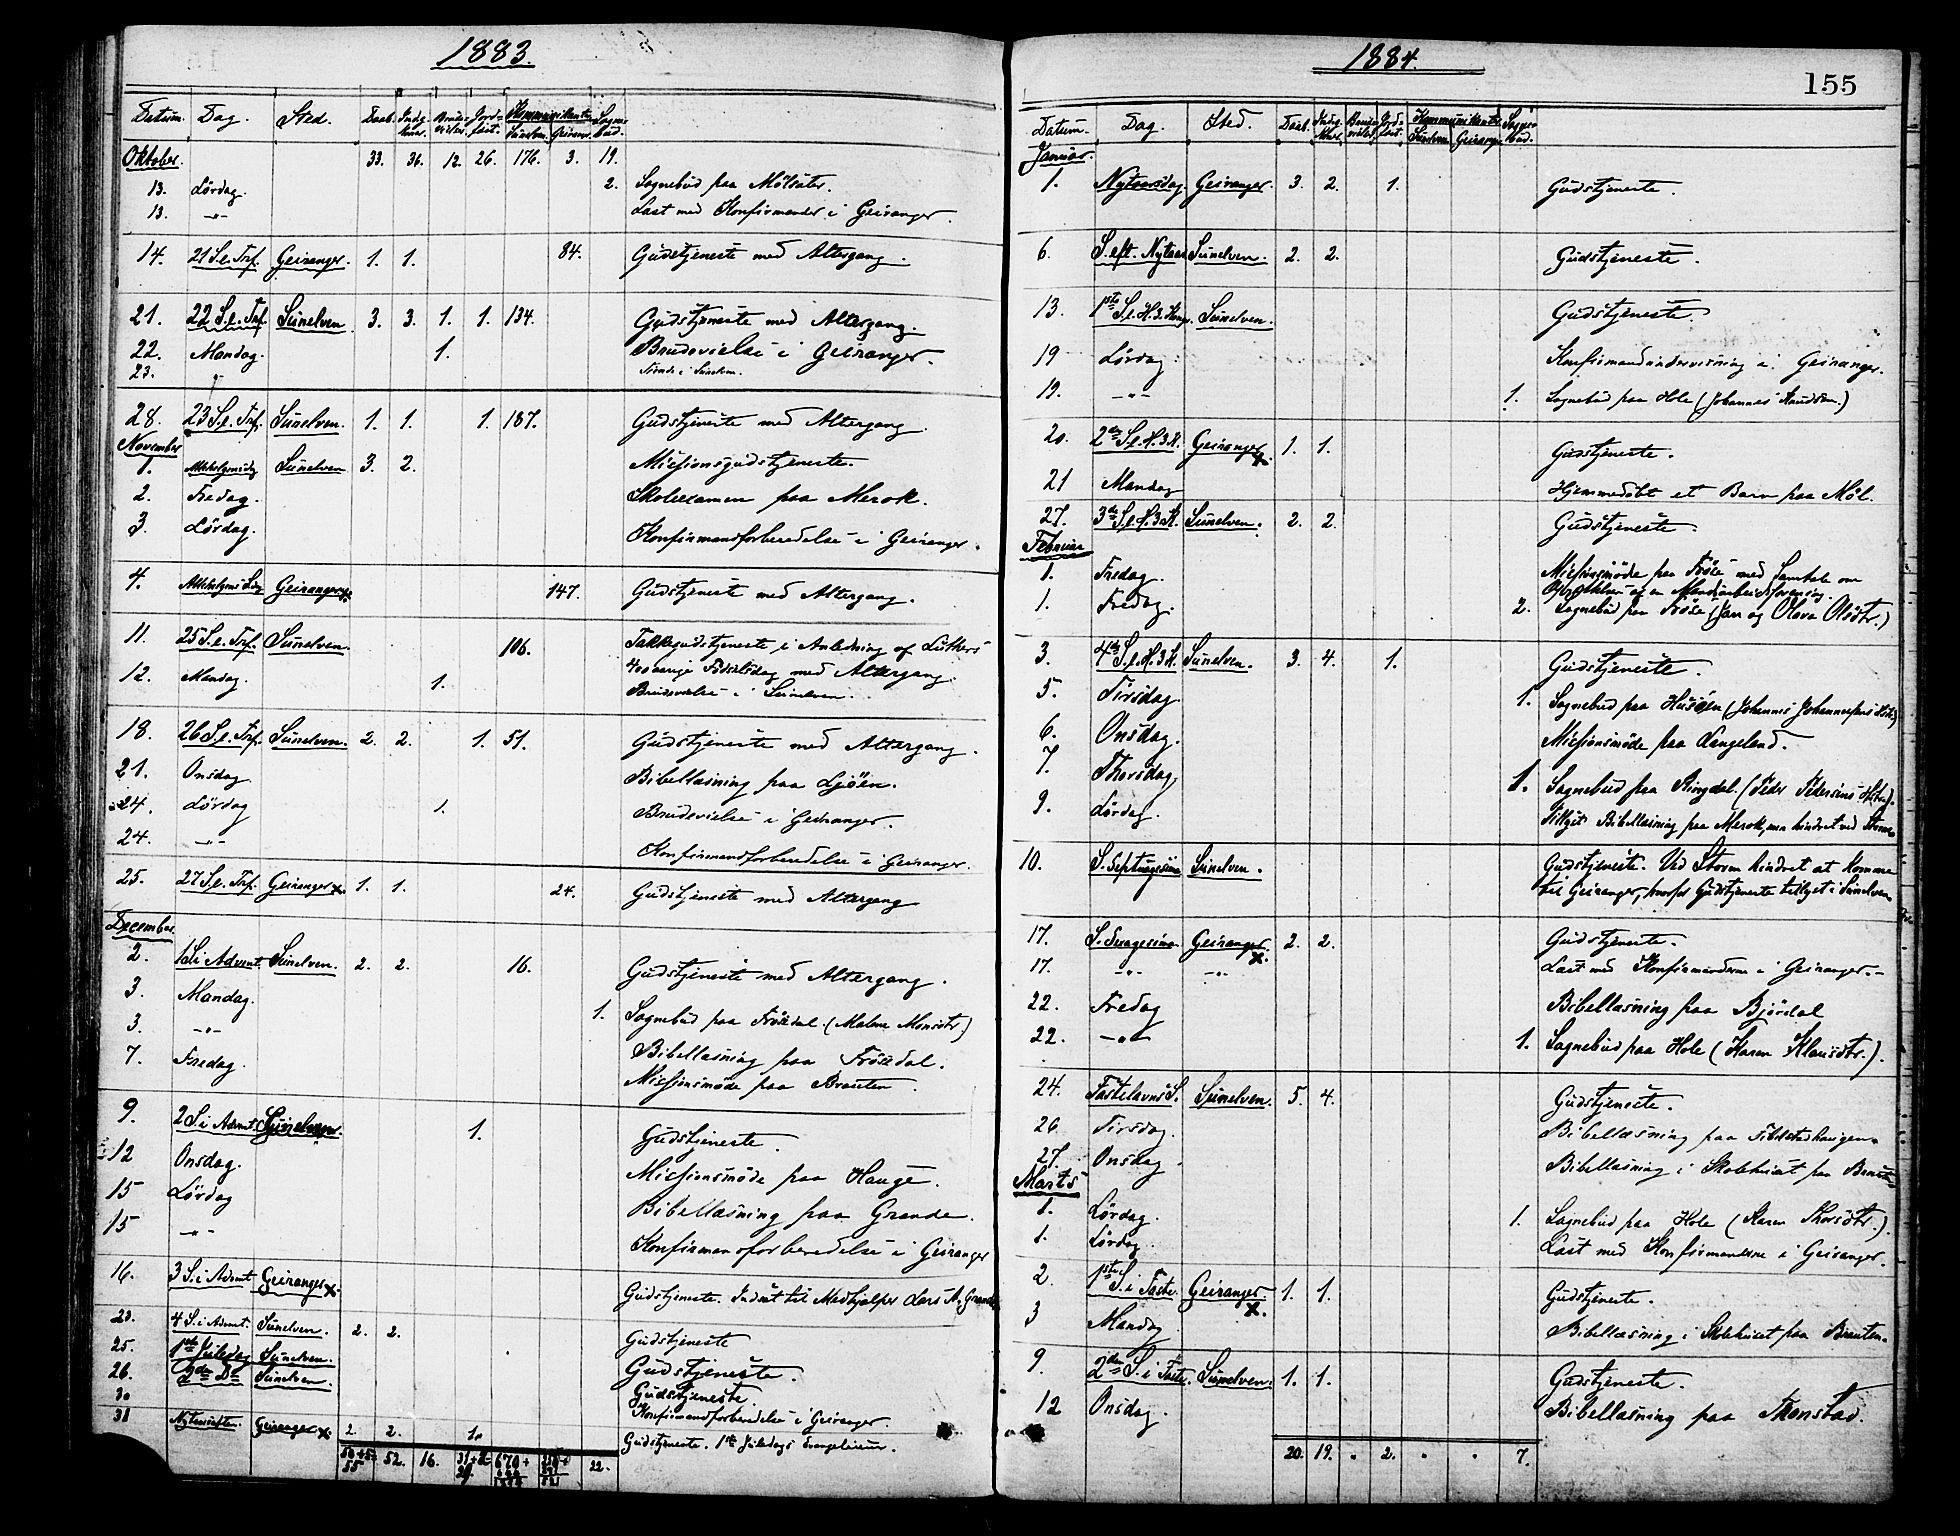 1883.
Datum. Dag. Sted. Daab. Indg. Kone. Brude vielse Jord- fæst. Kommunikanter Sunelven. Geiranger. Sogne- bud.
Oktober. 33. 36. 12. 26. 176. 3. 19.
13. Lördag. 2. Sognebud paa Mölsæter.
13. -"- Læst med Konfirmander i Geiranger.
14. 21 S. e. Trf. Geiranger. 1. 1. 84. Gudstjeneste med Altergang.
21. 22 S. e. Trf. Sunelven. 3. 3. 1. 1. 134. Gudstjeneste med Altergang.
22. Mandag. 1. Brudevielse i Geiranger.
23. " i Sunelven.
28. 23 S. e. Trf. Sunelven. 1. 1. 1. 187. Gudstjeneste med Altergang.
November
1. Allehelgensdag Sunelven 3. 2. Missionsgudstjeneste.
2. Fredag. Skoleexamen paa Merok.
3. Lördag. Konfirmandforberedelse i Geiranger.
4. Allehelgens Søn. Geiranger x. 147. Gudstjeneste med Altergang.
11. 25 S. e. Trf. Sunelven. 106. Takkegudstjeneste i Anledning af Luthers
400aarige Födselsdag med Altergang.
12. Mandag. 1. Brudevielse i Sunelven.
18. 26 S. e. Trf. Sunelven. 2. 2. 1. 51. Gudstjeneste med Altergang.
21. Onsdag Bibellæsning paa Ljöen.
24. Lördag 1. Brudevielse i Geiranger.
24. -"- Konfirmandforberedelse i Geiranger.
25. 27 S. e. Trf. Geiranger x. 1. 1. 24. Gudstjeneste med Altergang
December.
2. 1 S. i Advent. Sunelven. 2. 2. 16. Gudstjeneste med Altergang.
3. Mandag.
3. -"- 1. Sognebud paa Frösedal. (Malene Monsdtr.)
7. Fredag Bibellæsning paa Frösedal.
Missionsmöde paa Brauten.
9. 2 S. i Advent. Sunelven. 1. Gudstjeneste.
12 Onsdag. Missionsmöde paa Hauge.
15 Lördag Bibellæsning paa Grande.
15 -"- Konfirmandforberedelse i Geiranger
16. 3 S. i Advent Geiranger x. Gudstjeneste. Indsat til Medhjælper Lars A. Grande
23. 4 S. i Advent. Sunelven. 2. 2. Gudstjeneste
25. 1ste Juledag Sunelven. Gudstjeneste.
26. 2den Do Sunelven. Gudstjeneste.
30 Konfirmandforberedelse i Geiranger.
31 Nytaarsaften. Geiranger x. 2. 2. 1. Gudstjeneste. 1ste Juledags Evangelium.
55 52. 16. 670+ 521 22.
1884.
155
Datum. Dag. Sted. Daab. Indg. Kone. Brude- vielse Jord- fæst. Kommunikanter Sunelven Geiranger Sogne- bud.
Januar.
1. Nytaarsdag Geiranger. 3. 2. 1. Gudstjeneste.
6. S. eft. Nytaar Sunelven. 2. 2. Gudstjeneste.
13. 1ste S. e. H. 3. Kong. Sunelven. Gudstjeneste.
19 Lördag. Konfirmandundervisning i Geiranger.
19. -"- 1. Sognebud paa Hole (Johannes Knudsen.)
20. 2den S. e. H. 3 K. Geiranger x. 1. 1. Gudstjeneste.
21 Mandag Hjemmedöbt et Barn paa Möl.
27. 3die S. e. H. 3. K. Sunelven. 2. 2. Gudstjeneste.
Februar
1. Fredag. Missionsmöde paa Fröse med Samtale om
en Mandsarbeidsforening.
1. Fredag. 2. Sognebud paa Fröse (Jan og Olava Olsdtr.)
3. 4de S. e. H. 3 K. Sunelven. 3. 4. 1. Gudstjeneste.
5. Tirsdag 1. Sognebud paa Husöen (Johannes Johannessens Hstr.)
6. Onsdag. Missionsmöde paa Langeland.
7. Thorsdag, 1. Sognebud paa Ringdal. (Peder Pedersens Hstr.).
9. Lördag. Tillyst Bibellæsning paa Merok, men hindret ved Storm
10. S. Septuagesima Sunelven. Gudstjeneste. Ved Storm hindret at komme
til Geiranger, hvorfor Gudstjeneste tillyst i Sunelven
17. S. Sexagesima Geiranger x. 2. 2. Gudstjeneste.
17. -"- -"- Læst med Konfirmanderne i Geiranger.
22. Fredag Bibellæsning paa Björdal
22. -"- 1. Sognebud paa Hole (Karen Klausdtr.).
24. Fastelavns S. Sunelven. 5. 4. Gudstjeneste.
26 Tirsdag. Bibellæsning paa Fibelstadhaugen.
27. Onsdag Bibellæsning i Skolehuset paa Brauten
Marts
1. Lördag. 1. Sognebud paa Hole (Karen Thorsdtr.)
1. Lördag. Læst med Konfirmanderne i Geiranger.
2. 1ste S. i Faste. Geiranger x. 1. 1. Gudstjeneste.
3 Mandag Bibellæsning i Skolehuset paa Brauten.
9. 2den S. i Faste. Sunelven. 1. 1. Gudstjeneste.
12 Onsdag. Bibellæsning paa Tronstad.
20. 19. " 2. " " 7.